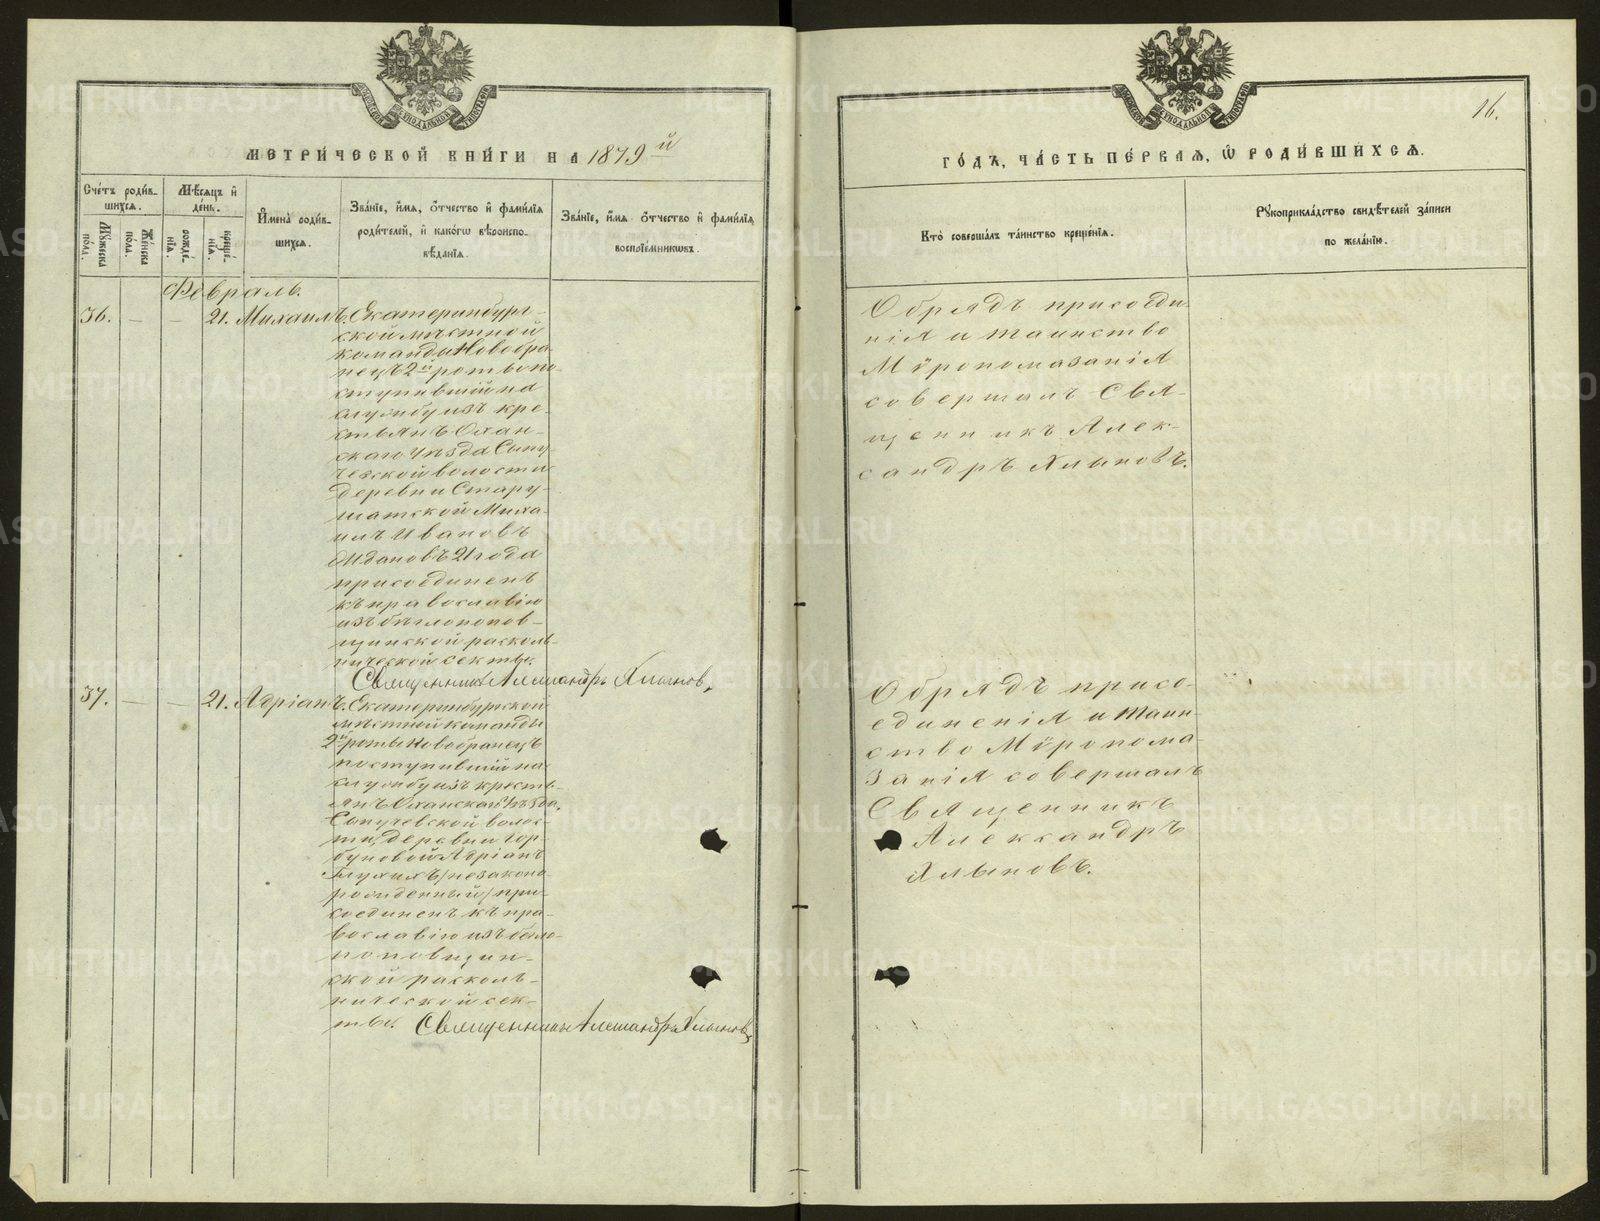 МЕТРИ́ЧЕСКОЙ КНИ́ГИ НА 1879й
Сче́тъ роди́в-
шихся.
Мѣ́сяцъ и
де́нь.
Му́жеска
по́ла.
Же́нска
по́ла.
рожде́-
нія.
креще́-
нія.
Имена̀ роди́в-
шихся.
Зва́ніе, и́мя, о́тчество и фами́лія
роди́телей, и како́гѡ вѣроиспо-
вѣ́данія.
Зва́ніе, и́мя о́тчество и фами́лія
воспріе́мникѡвъ.
Февраль.
36. — — 21. Михаилъ. Екатеринбург-
ской мѣстной
команды Новобра-
нецъ 2й роты по-
ступившій на
службу изъ кре-
стьянъ Охан-
скаго уѣзда Сыпу
чевской волости
деревни Стару-
шатской Миха-
илъ Ивановъ
21 года
присоединенъ
къ православію
изъ бѣглопопов-
щинской расколь-
нической секты.
Священникъ Александръ Хлыновъ.
37. — — 21. Адріанъ. Екатеринбургской
мѣстной команды
2й роты Новобранецъ
поступившій на
службу изъ кресть-
янъ Оханскаго уѣзда,
Сыпучевской волос-
ти, деревни Гор-
буновой Адріанъ
Глухихъ (незаконо
рожденный) при-
соединенъ къ пра-
вославію изъ бѣгло-
поповщин-
ской расколь-
нической сек-
ты. Священникъ Александръ Хлыновъ
16.
ГО́ДЪ, ЧА́СТЬ ПЕ́РВАЯ, Ѡ РОДИ́ВШИХСЯ.
Кто̀ соверша́лъ та́инство креще́нія.
Рукоприкла́дство свидѣ́телей за́писи
по жела́нію.
Обрядъ присоеди-
нія и таинство
Мѵропомазанія
совершалъ Свя-
щенникъ Алек-
сандръ Хлыновъ.
Обрядъ присо-
единенія и таин-
ство Мѵропома-
занія совершалъ
Священникъ
Александръ
Хлыновъ.
METRIKI.GASO-URAL.RU